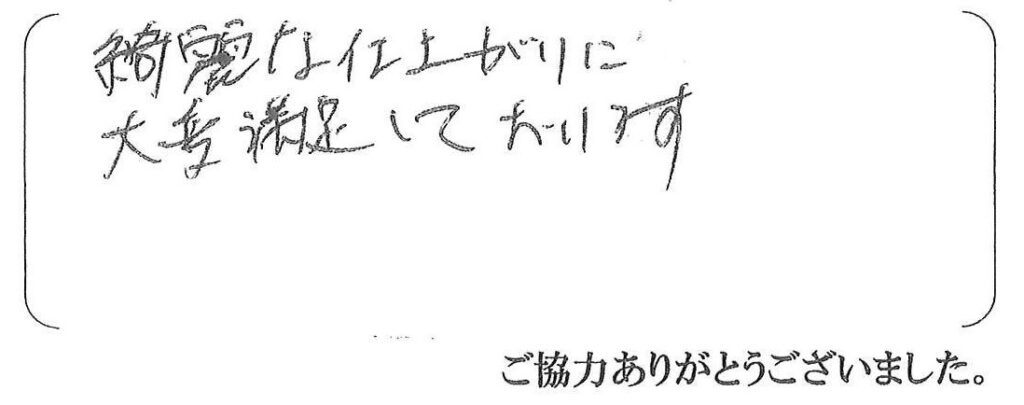 綺麗な仕上がりに
大変満足しております
ご協力ありがとうございました。